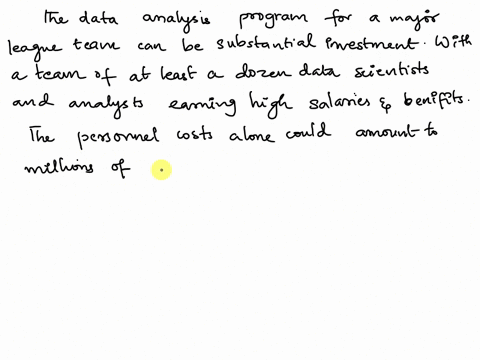 The data analysis program for a major
league team can be substantial investment. With
a team of at least a dozen data scientists
and analysts earning high salaries & benifits.
The personnel costs alone could amount to
millions of